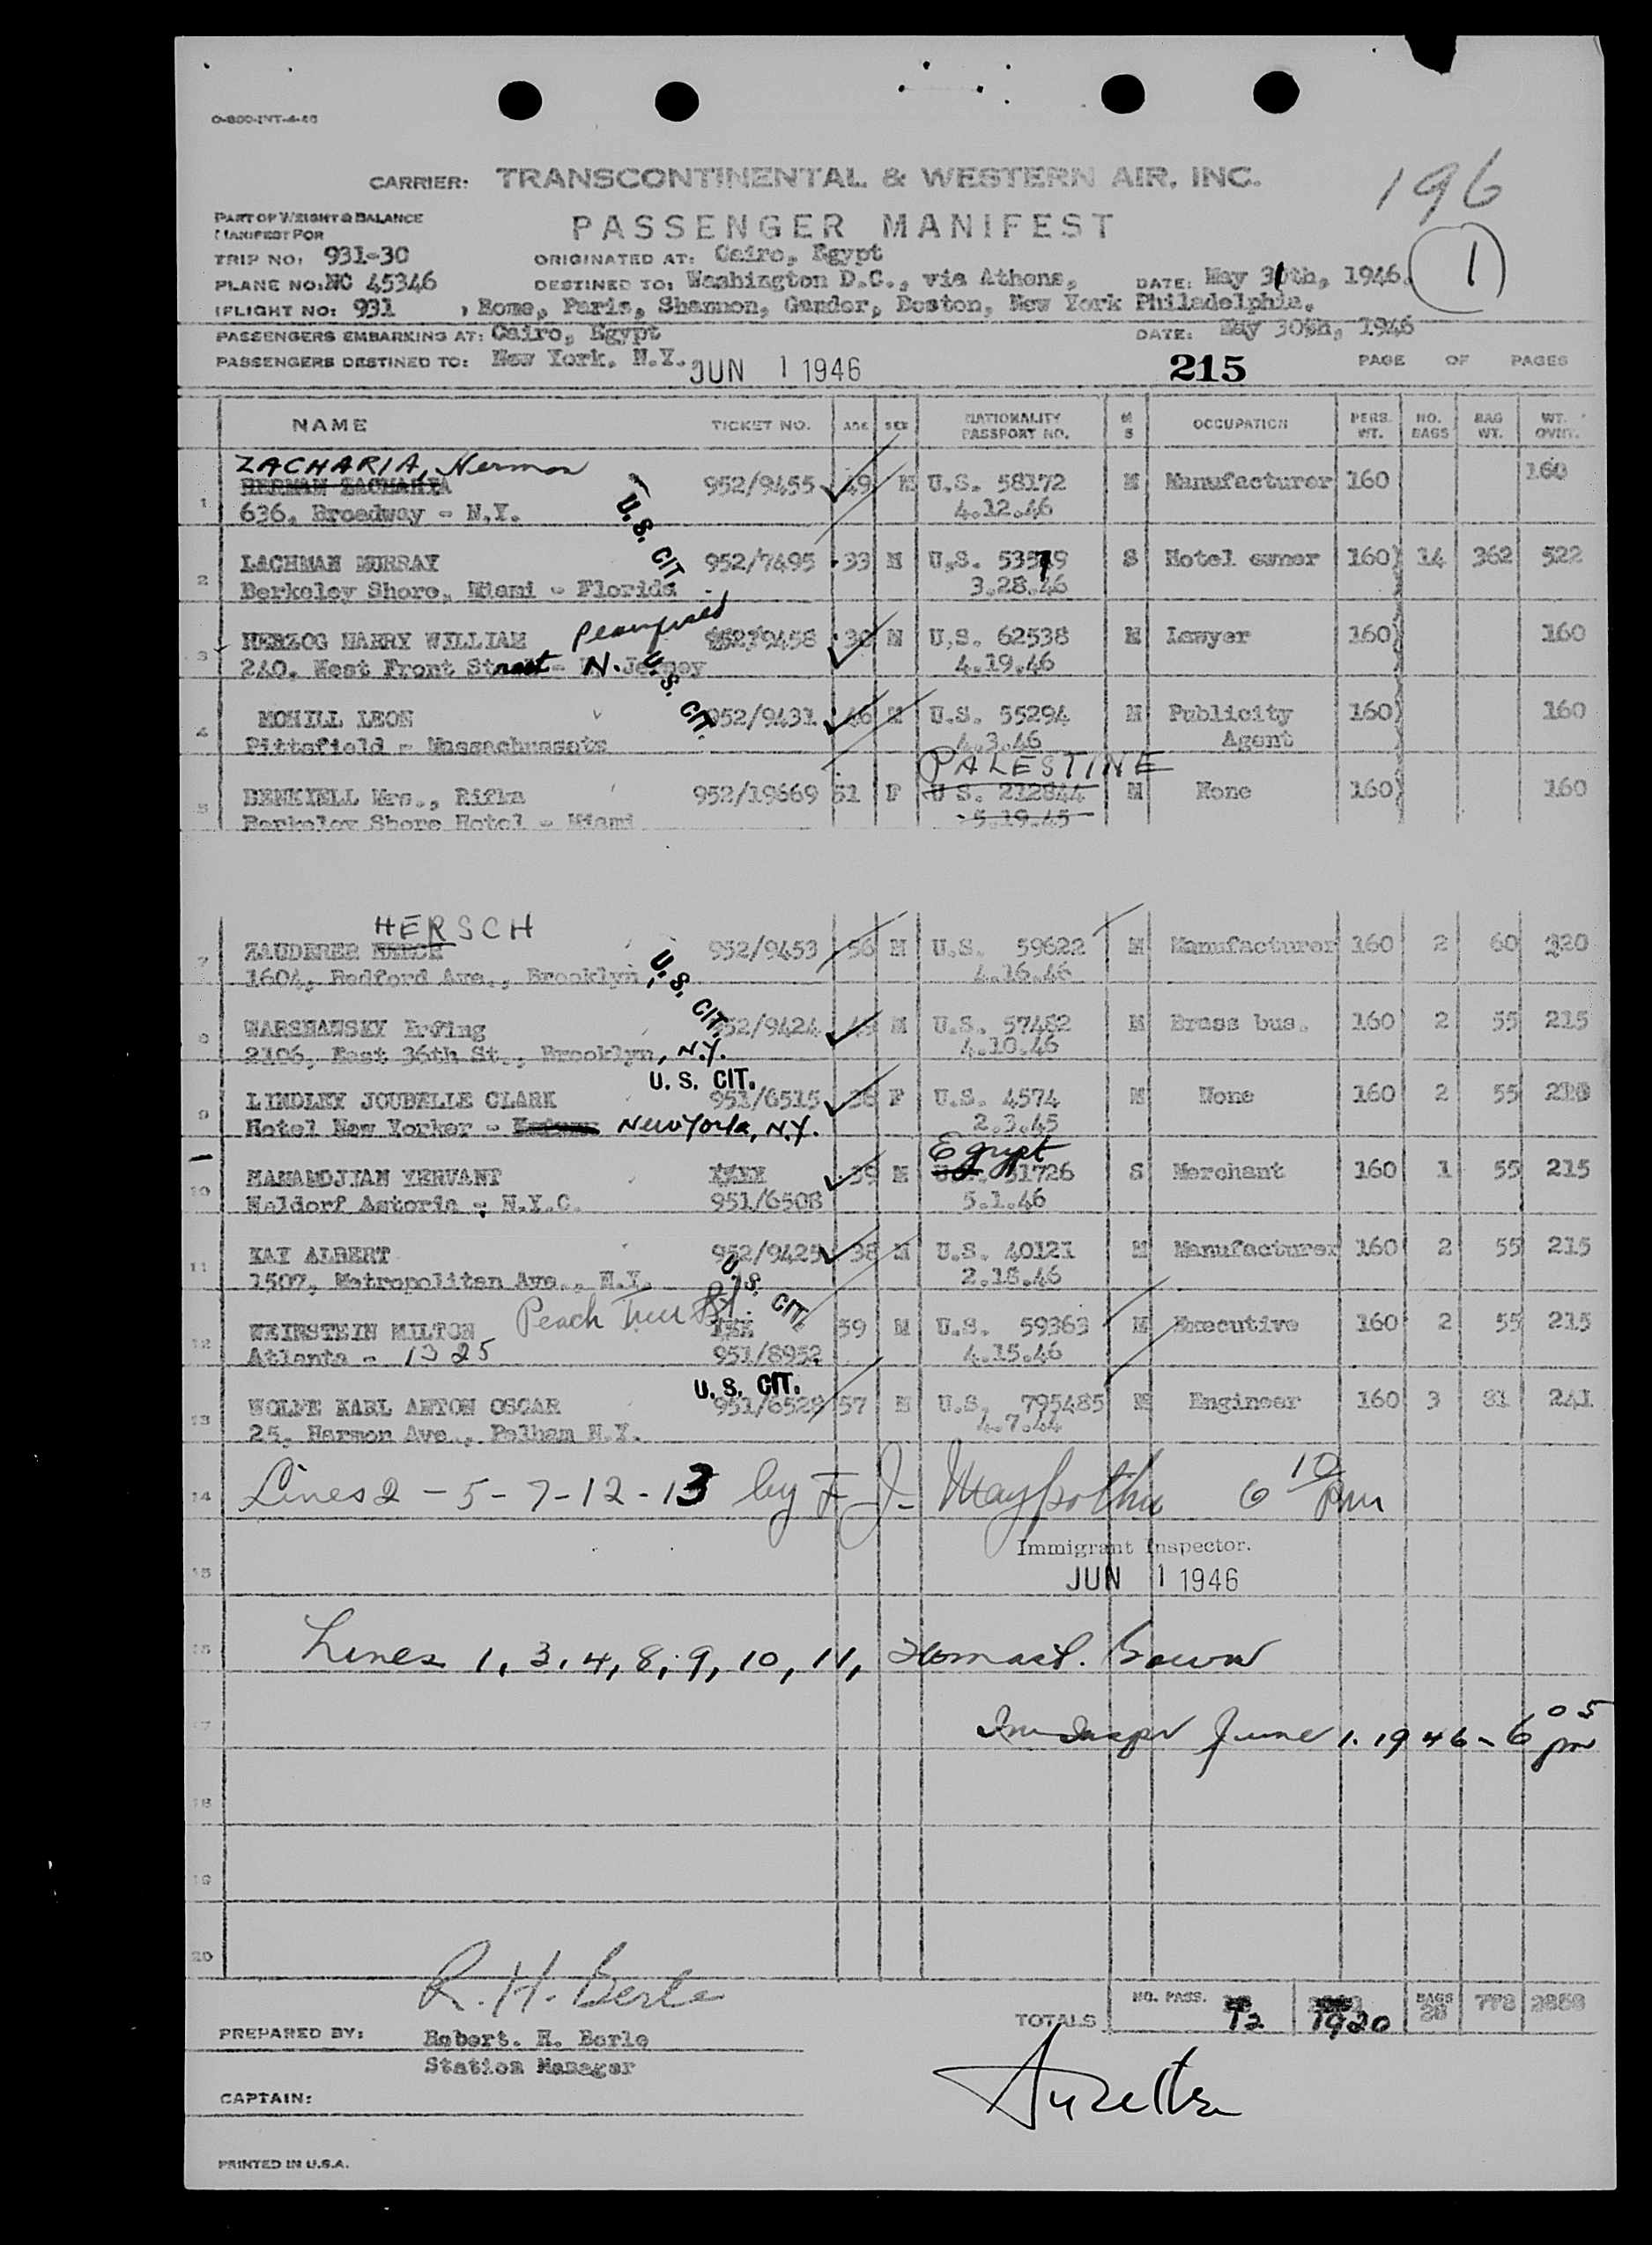 O-800-INT-4-46
196
CARRIER: TRANSCONTINENTAL & WESTERN AIR, INC.
PART OF WEIGHT & BALANCE
MANIFEST FOR
PASSENGER MANIFEST
TRIP NO: 931-30 ORIGINATED AT: Cairo, Egypt
1
PLANE NO: NC 45346 DESTINED TO: Washington D.C., via Athens, DATE: May 31th, 1946.
FLIGHT NO: 931 , Rome, Paris, Shannon, Gander, Boston, New York Philadelphia.
PASSENGERS EMBARKING AT: Cairo, Egypt DATE: May 30th, 1946
PASSENGERS DESTINED TO: New York, N.Y. JUN 1 1946 215 PAGE OF PAGES
NAME TICKET NO. AGE SEX NATIONALITY PASSPORT NO. M S OCCUPATION PERS. WT. NO. BAGS BAG WT. WT. OVER.
ZACHARIA, Herman
1 HERMAN ZACHARIA 952/9455 49 M U.S. 58172 M Manufacturer 160 160
636, Broadway - N.Y. 4.12.46
U.S. CIT.
2 LACHMAN MURRAY 952/7495 33 M U.S. 53579 S Hotel owner 160) 14 362 522
Berkeley Shore, Miami - Florida 3.28.46
3 HERZOG HARRY WILLIAM 952/9458 30 M U.S. 62538 M Lawyer 160) 160
240, West Front Street - N. Jersey 4.19.46
U.S. CIT.
4 MOHILL LEON 952/9431 46 M U.S. 55294 M Publicity 160) 160
Pittsfield - Massachussets 4.3.46 Agent
PALESTINE
5 BENKIELL Mrs., Rifka 952/19669 51 F U S. 212844 M None 160) 160
Berkeley Shore Hotel - Miami 5.19.45
HERSCH
7 ZAUDERER 952/9453 56 M U.S. 59622 M Manufacturer 160 2 60 220
1604, Bedford Ave., Brooklyn, 4.16.46
U.S. CIT.
8 WARSHAWSKY Irving 952/9424 M U.S. 57482 M Brass bus. 160 2 55 215
2106, East 36th St., Brooklyn, N.Y. 4.10.46
U. S. CIT.
9 LINDLEY JOUBELLE CLARK 951/6515 F U.S. 4574 M None 160 2 55
Hotel New Yorker - New York, N.Y. 2.3.45
Egypt
10 MAMAMDJIAN YERVANT XXXX 39 M 51726 S Merchant 160 1 55 215
Waldorf Astoria - N.Y.C. 951/6508 5.1.46
11 KAY ALBERT 952/9425 38 M U.S. 40121 M Manufacturer 160 2 55 215
1507, Metropolitan Ave., N.Y. 2.18.46
U.S. CIT.
Peach Tree Rd.
12 WEINSTEIN MILTON XXX 59 M U.S. 59363 M Executive 160 2 55 215
Atlanta - 1325 951/8952 4.15.46
U. S. CIT.
13 WOLFE KARL ANTON OSCAR 951/6528 57 M U.S. 795485 M Engineer 160 3 81 241
25, Harmon Ave., Pelham N.Y. 4.7.44
14 Lines 2 - 5 - 7 - 12 - 13 by F. J. 6 10 pm
Immigrant Inspector.
15 JUN 1 1946
16 Lines 1, 3, 4, 8, 9, 10, 11, Thomas
17 Im Inspr June 1. 1946 - 6 05 pm
18
19
20
R. H. Berle
TOTALS NO. PASS. 12 1920 BAGS 28 778 2858
PREPARED BY: Robert. H. Berle
Station Manager
CAPTAIN:
PRINTED IN U.S.A.